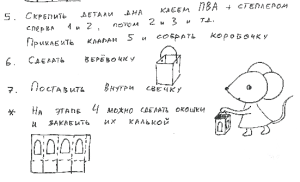 5. Скрепить детали дна каем ПВА + степлером
сперва 1 и 2, потом 2 и 3 и т.д.
Приклеить клапан 5 и собрать коробочку
6. Сделать верёвочку
7. Поставить внутри свечку
* На этапе 4 можно сделать окошки
и заклеить их калькой